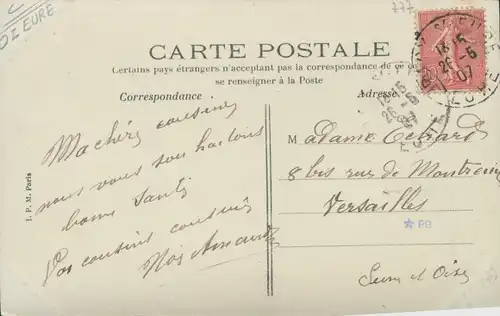 EURE
777
CARTE POSTALE
Certains pays étrangers n'acceptant pas la correspondance de ce
se renseigner à la Poste
Correspondance
Adresse
13 15
26 -5
07
EURE
Ma chère cousine
nous vous souhaitons
bonne Santé
Vos cousins
I. P. M. Paris
M adame
8 bis rue de Montreuil
Versailles
RB
Seine et Oise